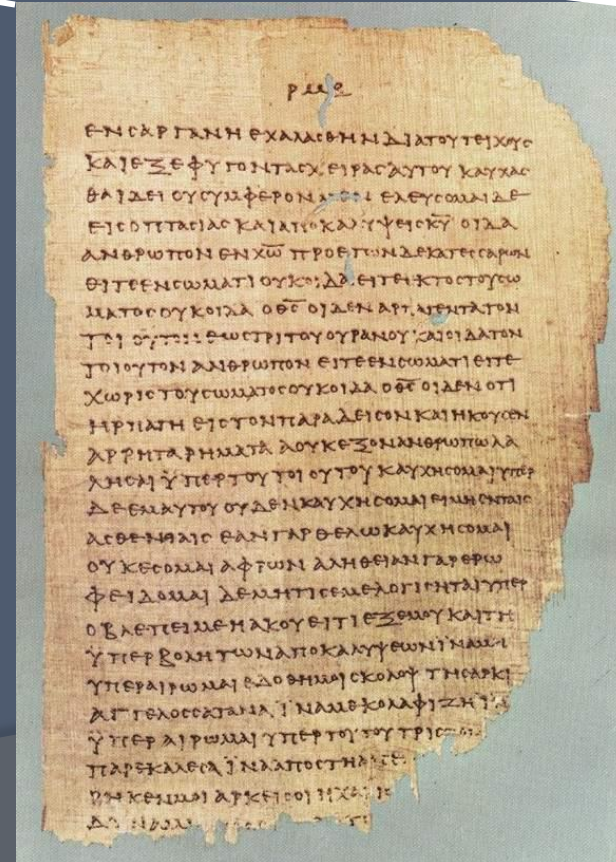 ΡΜΕ
ΕΝ ΣΑΡΓΑΝΗ ΕΧΑΛΑΣΘΗΝ ΔΙΑ ΤΟΥ ΤΕΙΧΟΥΣ
ΚΑΙ ΕΞΕΦΥΓΟΝ ΤΑΣ ΧΕΙΡΑΣ ΑΥΤΟΥ ΚΑΥΧΑΣ
ΘΑΙ ΔΕΙ ΟΥ ΣΥΜΦΕΡΟΝ ΜΕΝ ΕΛΕΥΣΟΜΑΙ ΔΕ
ΕΙΣ ΟΠΤΑΣΙΑΣ ΚΑΙ ΑΠΟΚΑΛΥΨΕΙΣ Κ̅Υ̅ ΟΙΔΑ
ΑΝΘΡΩΠΟΝ ΕΝ Χ̅Ω̅ ΠΡΟ ΕΤΩΝ ΔΕΚΑΤΕΣΣΑΡΩΝ
ΕΙΤΕ ΕΝ ΣΩΜΑΤΙ ΟΥΚ ΟΙΔΑ ΕΙΤΕ ΕΚΤΟΣ ΤΟΥ ΣΩ
ΜΑΤΟΣ ΟΥΚ ΟΙΔΑ Ο Θ̅Σ̅ ΟΙΔΕΝ ΑΡΠΑΓΕΝΤΑ ΤΟΝ
ΤΟΙΟΥΤΟΝ ΕΩΣ ΤΡΙΤΟΥ ΟΥΡΑΝΟΥ ΚΑΙ ΟΙΔΑ ΤΟΝ
ΤΟΙΟΥΤΟΝ ΑΝΘΡΩΠΟΝ ΕΙΤΕ ΕΝ ΣΩΜΑΤΙ ΕΙΤΕ
ΧΩΡΙΣ ΤΟΥ ΣΩΜΑΤΟΣ ΟΥΚ ΟΙΔΑ Ο Θ̅Σ̅ ΟΙΔΕΝ ΟΤΙ
ΗΡΠΑΓΗ ΕΙΣ ΤΟΝ ΠΑΡΑΔΕΙΣΟΝ ΚΑΙ ΗΚΟΥΣΕΝ
ΑΡΡΗΤΑ ΡΗΜΑΤΑ Α ΟΥΚ ΕΞΟΝ ΑΝΘΡΩΠΩ ΛΑ
ΛΗΣΑΙ ΫΠΕΡ ΤΟΥ ΤΟΙΟΥΤΟΥ ΚΑΥΧΗΣΟΜΑΙ ΥΠΕΡ
ΔΕ ΕΜΑΥΤΟΥ ΟΥΔΕΝ ΚΑΥΧΗΣΟΜΑΙ ΕΙ ΜΗ ΕΝ ΤΑΙΣ
ΑΣΘΕΝΕΙΑΙΣ ΕΑΝ ΓΑΡ ΘΕΛΩ ΚΑΥΧΗΣΟΜΑΙ
ΟΥΚ ΕΣΟΜΑΙ ΑΦΡΩΝ ΑΛΗΘΕΙΑΝ ΓΑΡ ΕΡΩ
ΦΕΙΔΟΜΑΙ ΔΕ ΜΗ ΤΙΣ ΕΜΕ ΛΟΓΙΣΗΤΑΙ ΥΠΕΡ
Ο ΒΛΕΠΕΙ ΜΕ Η ΑΚΟΥΕΙ ΤΙ ΕΞ ΕΜΟΥ ΚΑΙ ΤΗ
ΫΠΕΡΒΟΛΗ ΤΩΝ ΑΠΟΚΑΛΥΨΕΩΝ ΪΝΑ ΜΗ
ΥΠΕΡΑΙΡΩΜΑΙ ΕΔΟΘΗ ΜΟΙ ΣΚΟΛΟΨ ΤΗ ΣΑΡΚΙ
ΑΓΓΕΛΟΣ ΣΑΤΑΝΑ ΪΝΑ ΜΕ ΚΟΛΑΦΙΖΗ ΪΝΑ
ΫΠΕΡΑΙΡΩΜΑΙ ΥΠΕΡ ΤΟΥΤΟΥ ΤΡΙΣ
ΠΑΡΕΚΑΛΕΣΑ ΪΝΑ ΑΠΟΣΤΗ ΑΠ Ε
ΡΗΚΕΝ ΜΟΙ ΑΡΚΕΙ ΣΟΙ Η ΧΑΡΙΣ
ΔΥΝΑΜΙΣ